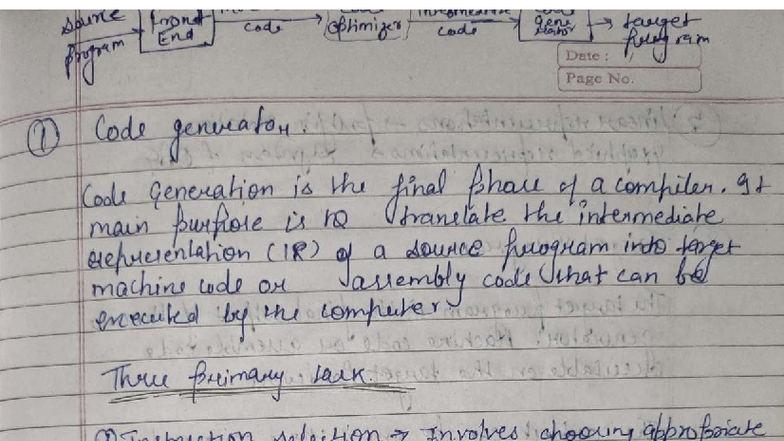 source program
Front End
code
optimizer
code
code gene rator
target program
Date :
Page No.
① Code generator.
Code Generation is the final phase of a compiler. It
main purpose is to translate the intermediate
representation (IR) of a source program into target
machine code or assembly code that can be
executed by the computer
Three primary task.
① Instruction selection → Involves choosing appropriate